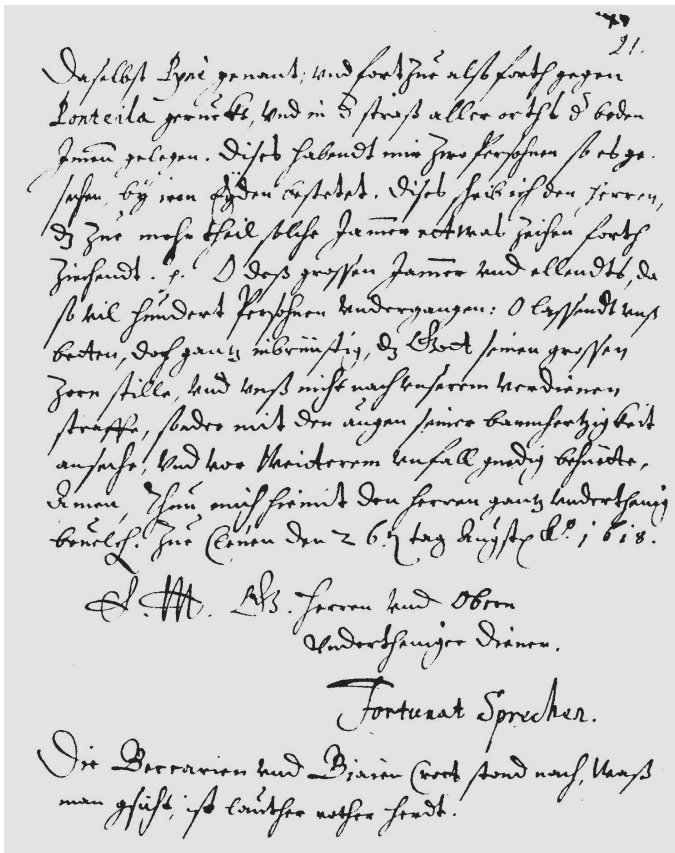 21.
Daselbst genant; vnd fort zue alß forth gegen
Ponteila geruckt, vnd in d straß aller orths d beden
gelegen. dises habendt mir zwo Persohnen so es ge.
sehen, by iren Eyden bestetet. dises ich den Herren,
dz zue mehr theil solche Jamer ettwas zeihen forth
ziechendt. p. O deß grossen Jamer vnd ellendts, da
so vil hundert Persohnen vndergangen: O lassendt vnß
betten, doch gantz inbrünstig, dz Gott seinen grossen
Zorn stille, vnd vnß nicht nach vnserem verdienen
straffe, sonder mit den augen seiner barmhertzigkeit
ansehe, vnd vor Weiterem vnfall gnedig behüette,
Amen, Thun mich hiemit den Herren gantz vnderthenig
beuelch. Zue Cleuen den 26. tag Augst 1618.
Herren vnd Obern
vndertheniger diener.
Fortunat Sprecher.
Die Beccarien vnd stond nach, Waß
man gsicht, ist lauther rother herdt.